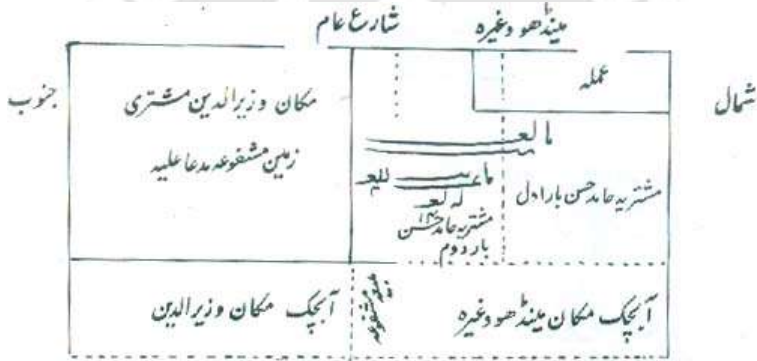 شارع عام
مینڈھو وغیرہ
شمال
جنوب
عملہ
مکان وزیرالدین مشتری
زمین مشفوعہ مدعا علیہ
مشتریہ حامد حسن بار اول
مشتریہ حامد حسن
بار دوم
آبچک مکان مینڈھو وغیرہ
مشفوعہ
آبچک مکان وزیرالدین